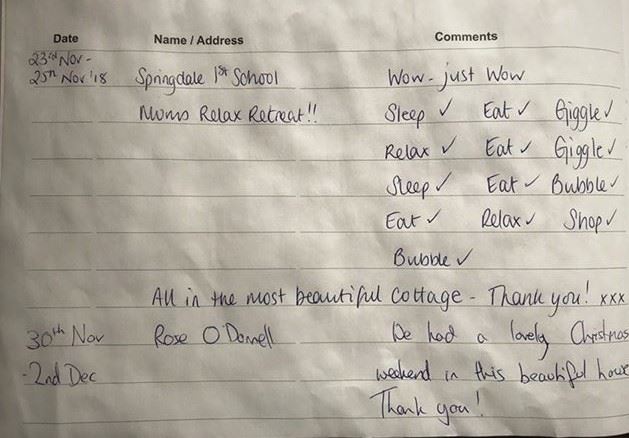 Date Name / Address Comments
23rd Nov -
25th Nov '18 Springdale 1st School Wow - just Wow
Mums Relax Retreat!! Sleep ✓ Eat ✓ Giggle ✓
Relax ✓ Eat ✓ Giggle ✓
Sleep ✓ Eat ✓ Bubble ✓
Eat ✓ Relax ✓ Shop ✓
Bubble ✓
All in the most beautiful cottage - Thank you! xxx
30th Nov Rose O'Donnell We had a lovely Christmas
-2nd Dec weekend in this beautiful house
Thank you!